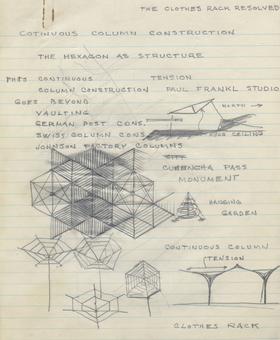 THE CLOTHES RACK RESOLVED
COTINUOUS COLUMN CONSTRUCTION
THE HEXAGON AS STRUCTURE
CONTINUOUS TENSION
COLUMN CONSTRUCTION PAUL FRANKL STUDIO
GOES BEYOND
NORTH
VAULTING
GERMAN POST CONS.
SWISS COLUMN CONS. CEILING
JOHNSON FACTORY COLUMNS
PASS
MONUMENT
HANGING
GARDEN
CONTINUOUS COLUMN
TENSION
CLOTHES RACK